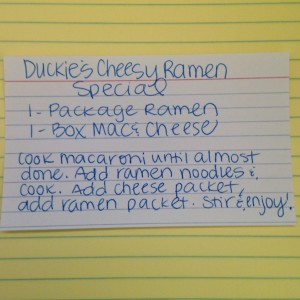 Duckie's Cheesy Ramen
Special
1 - Package Ramen
1 - Box Mac & Cheese
Cook macaroni until almost
done. Add ramen noodles &
cook. Add cheese packet,
add ramen packet. Stir & enjoy!